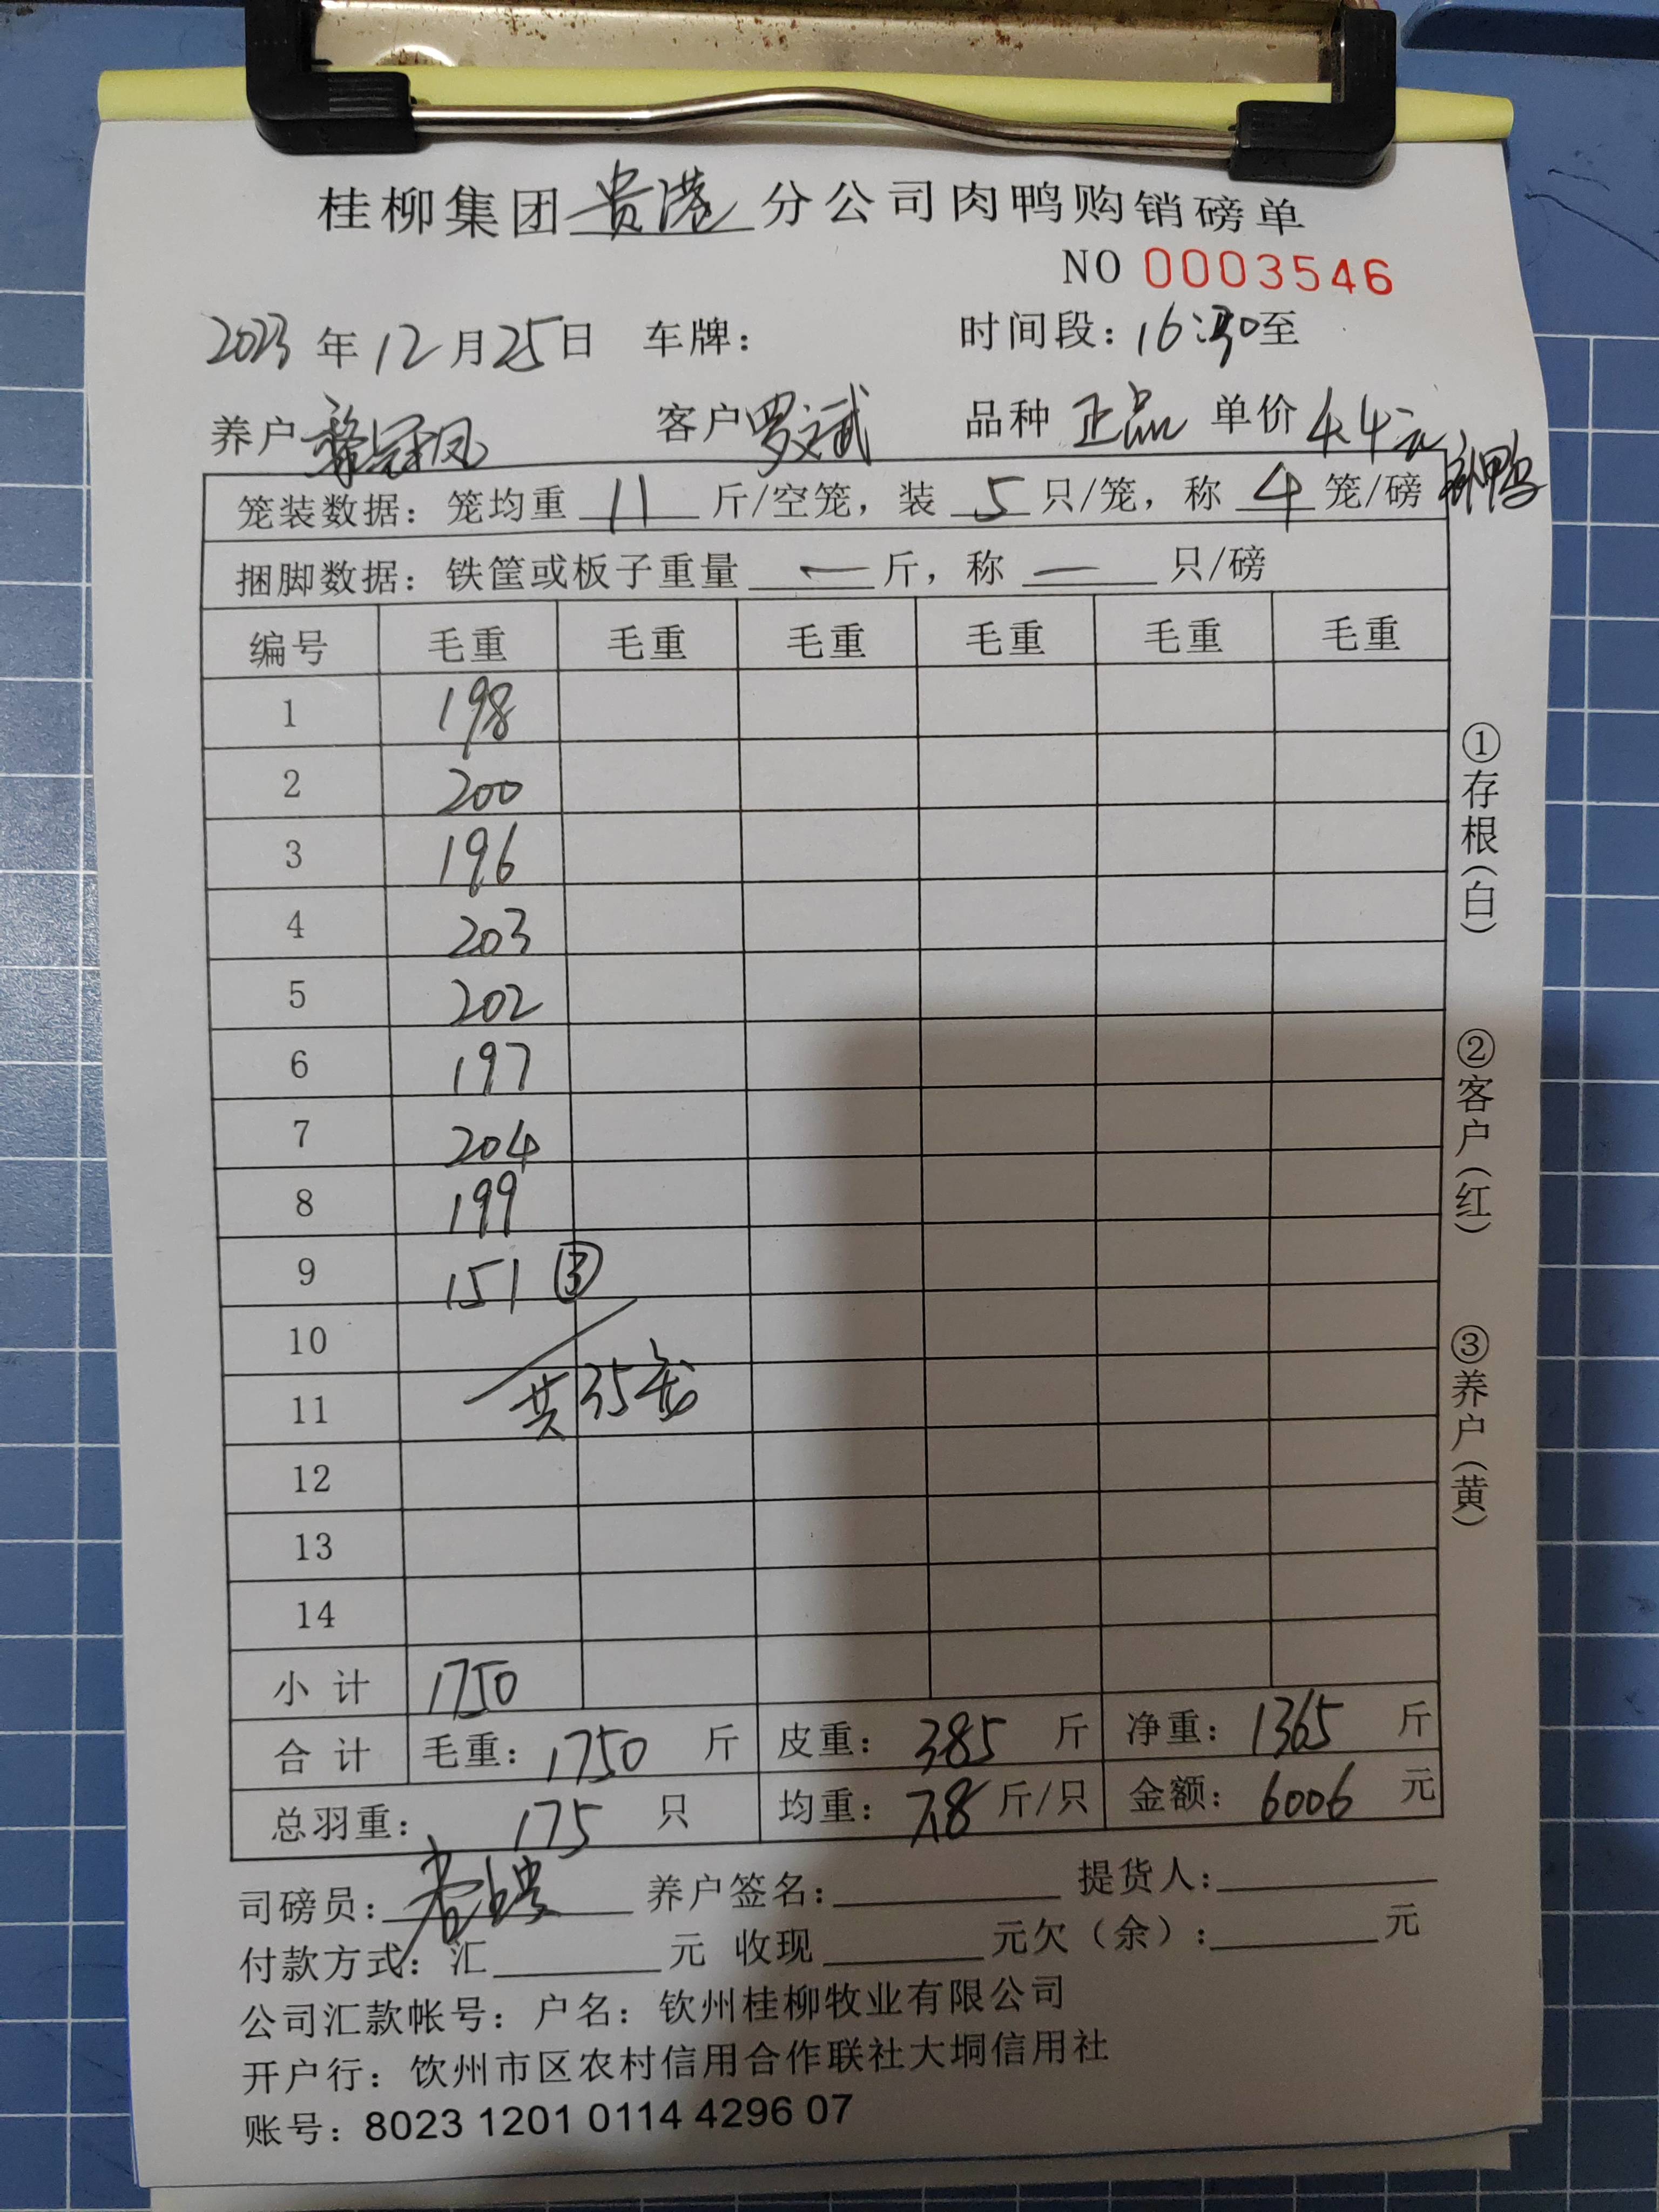 桂柳集团贵港分公司肉鸭购销磅单
NO 0003546
2023年12月25日 车牌： 时间段：16:30至
养户 客户罗文武 品种 正品 单价 4.4元
鸭
笼装数据：笼均重 11 斤/空笼，装 5 只/笼，称 4 笼/磅
捆脚数据：铁筐或板子重量 — 斤，称 — 只/磅
编号 毛重 毛重 毛重 毛重 毛重 毛重
1 198
2 200
3 196
4 203
5 202
6 197
7 204
8 199
9 151 ③
10
11 共35笼
12
13
14
小计 1750
合计 毛重：1750 斤 皮重：385 斤 净重：1365 斤
总羽重：175 只 均重：7.8 斤/只 金额：6006 元
司磅员： 养户签名： 提货人：
付款方式：汇 元 收现 元欠（余）： 元
公司汇款帐号：户名：钦州桂柳牧业有限公司
开户行：钦州市区农村信用合作联社大垌信用社
账号：8023 1201 0114 4296 07
①存根（白）
②客户（红）
③养户（黄）